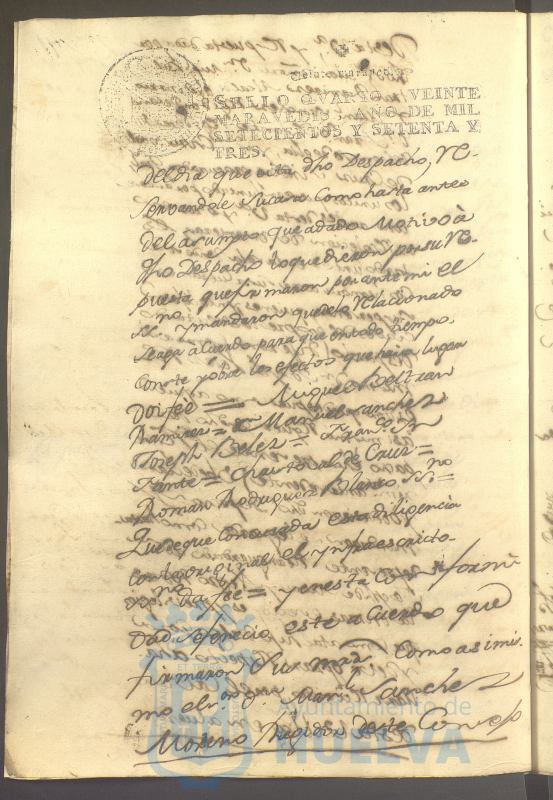 SELLO QVARTO, VEINTE
MARAVEDIS, AÑO DE MIL
SETECIENTOS Y SETENTA Y
TRES.
del dia que cita dho Despacho, re-
servandole sucara como hasta antes
del asumpto que adado Motivo à
dho Despacho loquedieron por su re-
puesta que firmaron por antemi el
ss.no y mandaron quedelo relacionado
seaga acuerdo para que entodo tiempo
conste yobre los efectos que haia lugar
doi fee = Miguel Beltran
Ramirez = Manuel Sanchez
Joseph Belez = Fran.co
Fante = Christobal de Cruz =
Roman Rodriguez Blanco ss.no =
Quedeque concuerda esta diligencia
con la original el ynfraescripto
ss.no da fee = y en esta conformi
dad fenecio este acuerdo que
firmaron Sus mrds como asimi
mo el Sanchez
Moreno Regidor deste Consejo
Ayuntamiento de
HUELVA